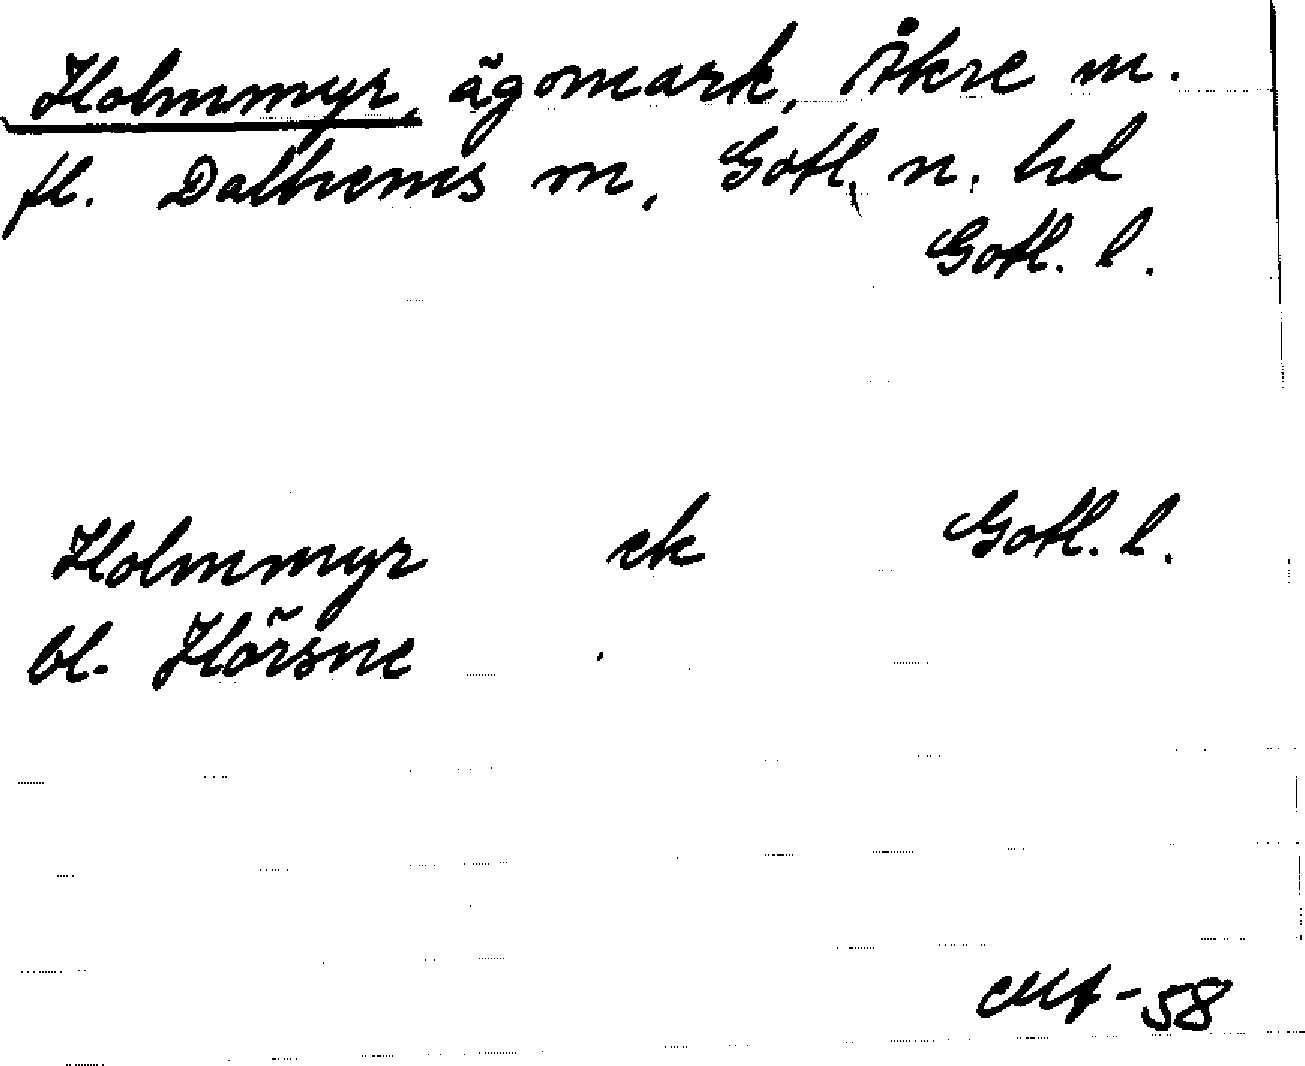 Holmmyr, ägomark, Åkre m.
fl. Dalhems m, Gotl. n. hd
Gotl. l.
Holmmyr ek Gotl. l.
bl. Hörsne
-58